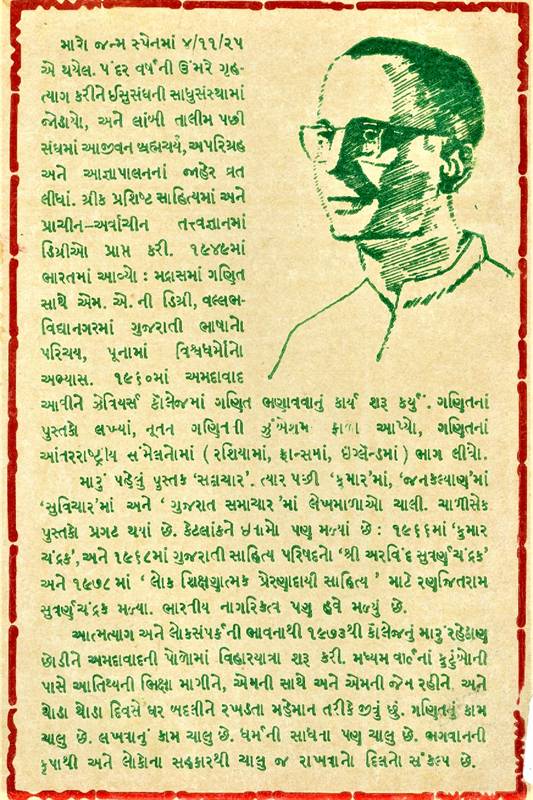 મારો જન્મ સ્પેનમાં ૪/૧૧/૨૫
એ થયેલ. પંદર વર્ષની ઉંમરે ગૃહ-
ત્યાગ કરીને ઈસુસંઘની સાધુસંસ્થામાં
જોડાયો, અને લાંબી તાલીમ પછી
સંઘમાં આજીવન બ્રહ્મચર્ય, અપરિગ્રહ
અને આજ્ઞાપાલનનાં જાહેર વ્રત
લીધાં. ગ્રીક પ્રશિષ્ટ સાહિત્યમાં અને
પ્રાચીન–અર્વાચીન તત્ત્વજ્ઞાનમાં
ડિગ્રીઓ પ્રાપ્ત કરી. ૧૯૪૯માં
ભારતમાં આવ્યો : મદ્રાસમાં ગણિત
સાથે એમ. એ. ની ડિગ્રી, વલ્લભ-
વિદ્યાનગરમાં ગુજરાતી ભાષાનો
પરિચય, પૂનામાં વિશ્વધર્મોનો
અભ્યાસ. ૧૯૬૦માં અમદાવાદ
આવીને ઝેવિયર્સ કૉલેજમાં ગણિત ભણાવવાનું કાર્ય શરૂ કર્યું. ગણિતનાં
પુસ્તકો લખ્યાં, નૂતન ગણિતની ઝુંબેશમાં ફાળો આપ્યો, ગણિતનાં
આંતરરાષ્ટ્રીય સંમેલનોમાં ( રશિયામાં, ફ્રાન્સમાં, ઇંગ્લેન્ડમાં ) ભાગ લીધો.
મારું પહેલું પુસ્તક ‘સદાચાર’. ત્યાર પછી ‘કુમાર’માં, ‘જનકલ્યાણ’માં
‘સુવિચાર’માં અને ‘ ગુજરાત સમાચાર ’માં લેખમાળાઓ ચાલી. ચાળીસેક
પુસ્તકો પ્રગટ થયાં છે. કેટલાંકને ઇનામો પણ મળ્યાં છે : ૧૯૬૬માં ‘કુમાર
ચંદ્રક’, અને ૧૯૬૮માં ગુજરાતી સાહિત્ય પરિષદનો ‘શ્રી અરવિંદ સુવર્ણચંદ્રક’
અને ૧૯૭૮ માં ‘ લોક શિક્ષણાત્મક પ્રેરણાદાયી સાહિત્ય ’ માટે રણજિતરામ
સુવર્ણચંદ્રક મળ્યા. ભારતીય નાગરિકત્વ પણ હવે મળ્યું છે.
આત્મત્યાગ અને લોકસંપર્કની ભાવનાથી ૧૯૭૩થી કૉલેજનું મારું રહેઠાણ
છોડીને અમદાવાદની પોળોમાં વિહારયાત્રા શરૂ કરી. મધ્યમ વર્ગનાં કુટુંબોની
પાસે આતિથ્યની ભિક્ષા માગીને, એમની સાથે અને એમની જેમ રહીને અને
થોડા થોડા દિવસે ઘર બદલીને રખડતા મહેમાન તરીકે જીવું છું. ગણિતનું કામ
ચાલુ છે. લખવાનું કામ ચાલુ છે. ધર્મની સાધના પણ ચાલુ છે. ભગવાનની
કૃપાથી અને લોકોના સહકારથી ચાલુ જ રાખવાનો દિલનો સંકલ્પ છે.